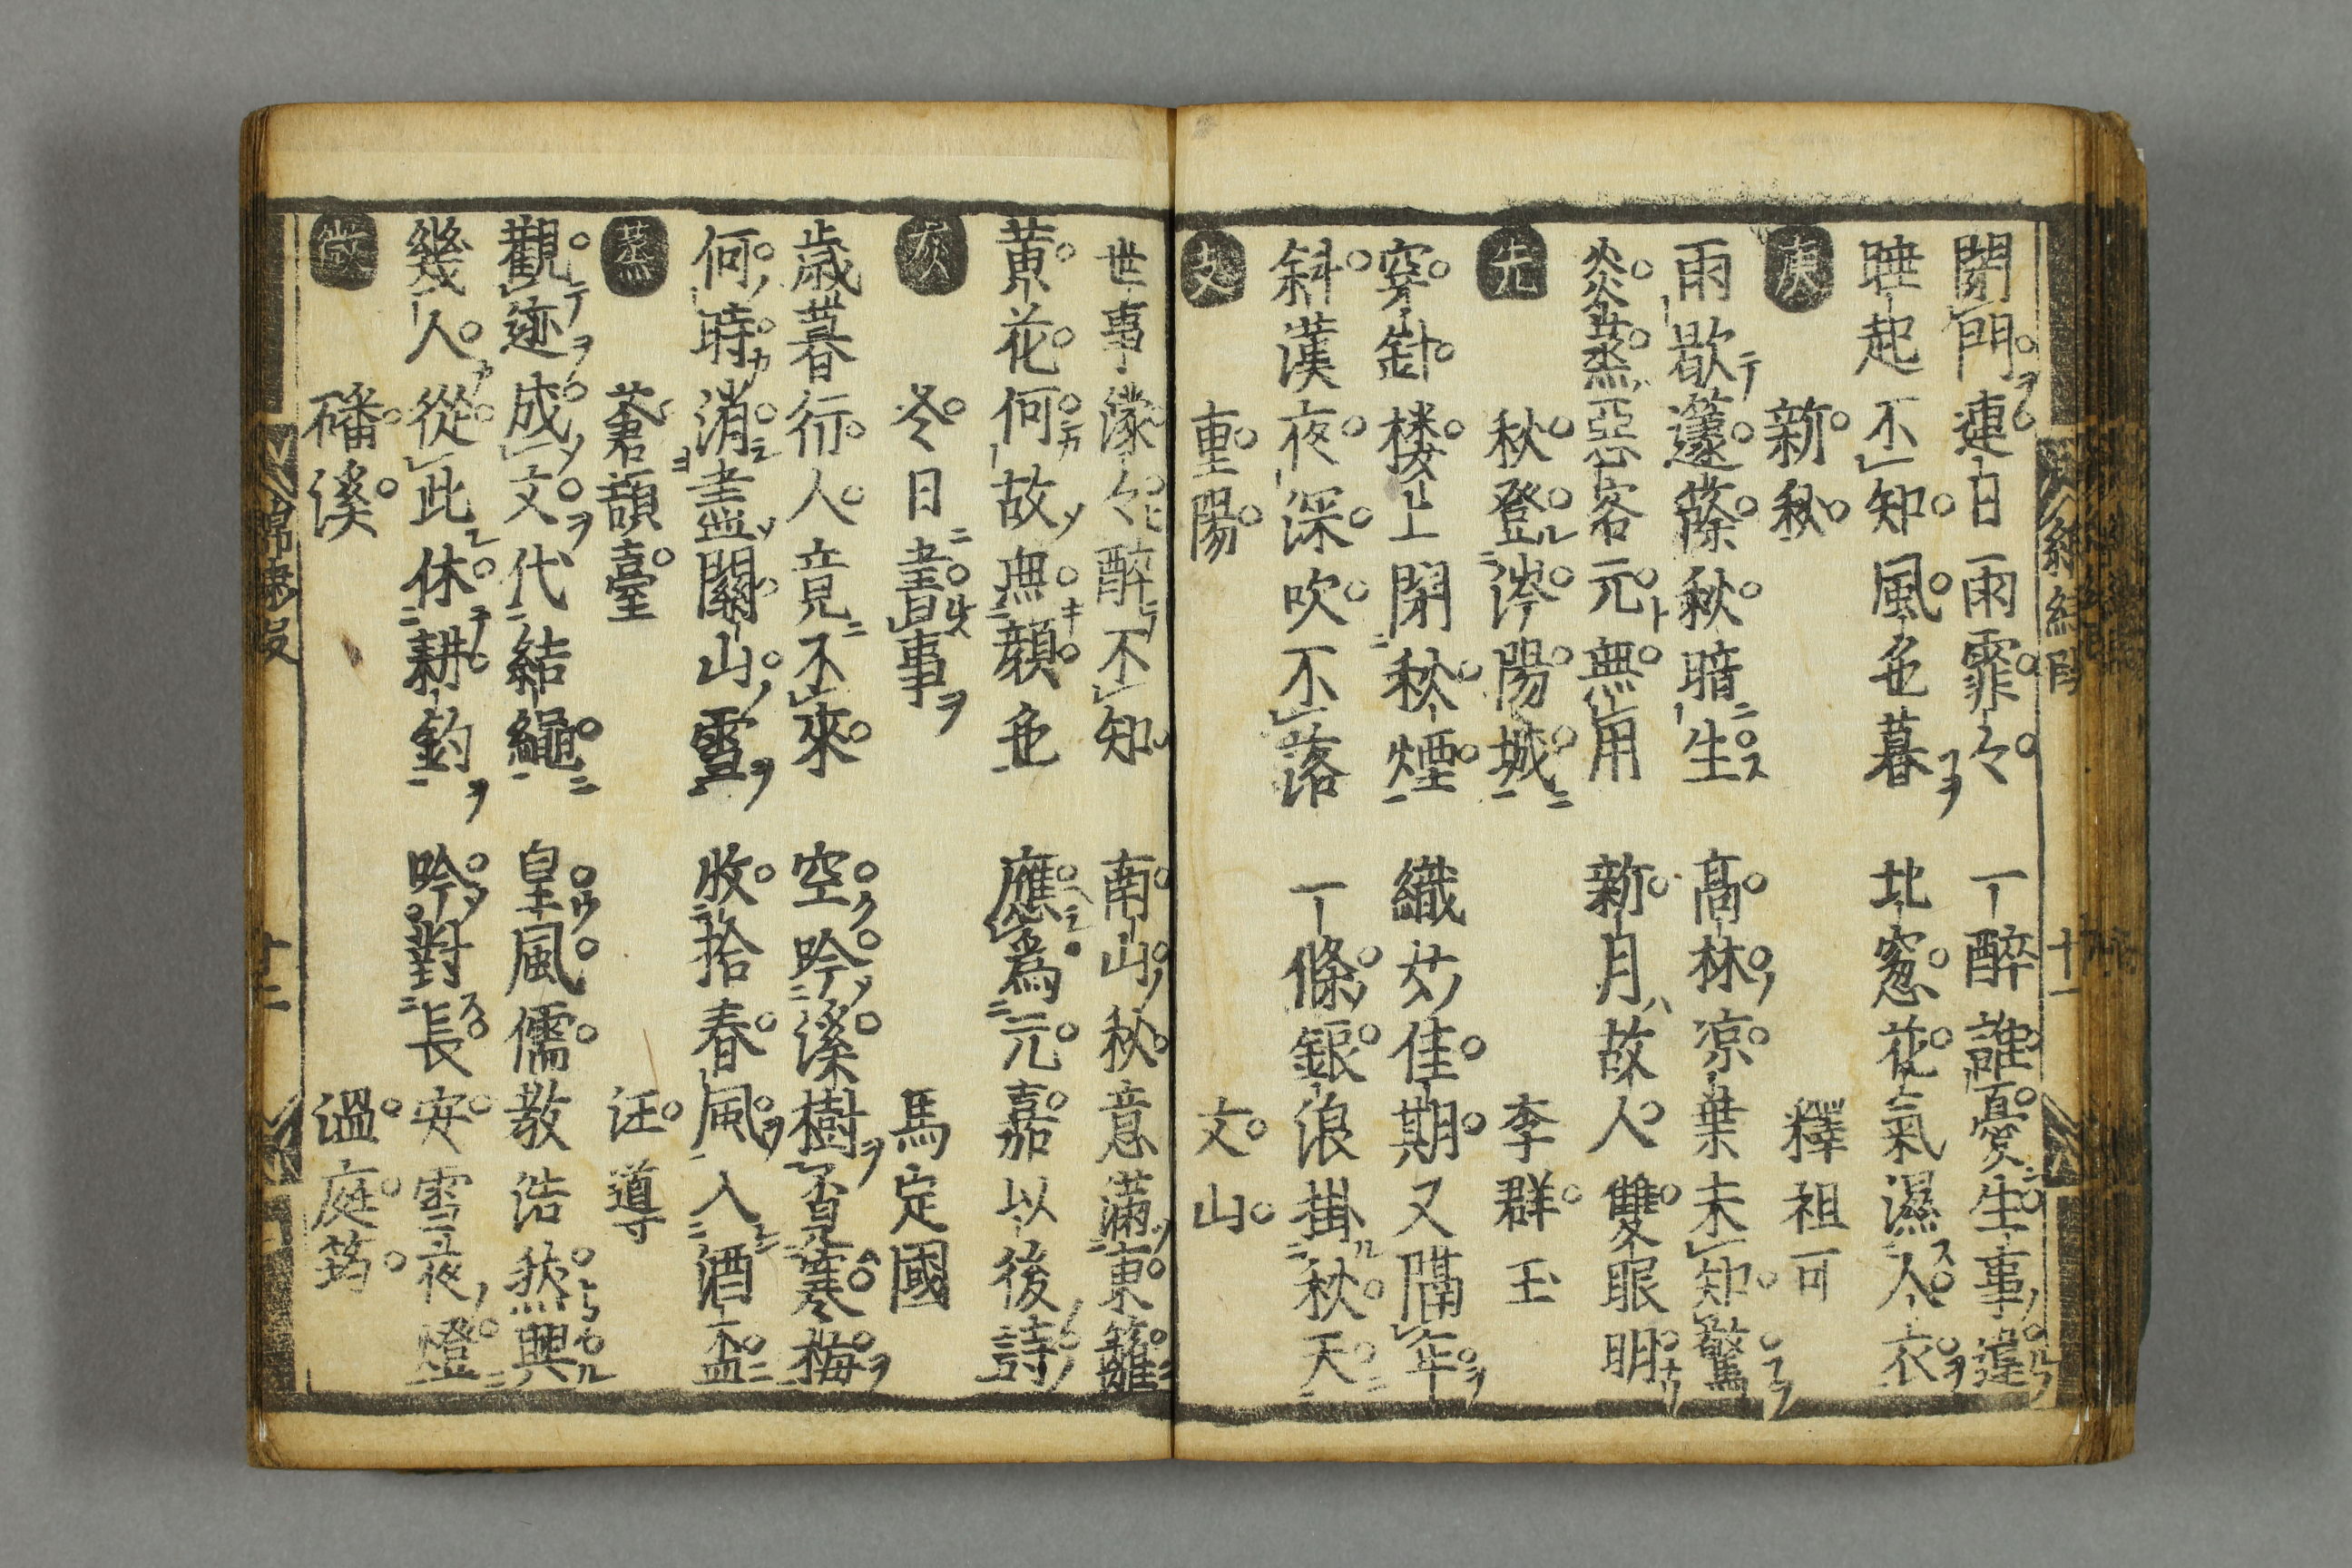 閉門連日雨霏々　一醉誰憂生事違
睡起不知風色暮　北窓花氣濕人衣
庚　新秋　釋祖可
雨歇籧篨秋暗生　高林凉葉未知驚
炎蒸惡客元無用　新月故人雙眼明
先　秋登涔陽城　李群玉
穿針樓上閉秋煙　織女佳期又隔年
斜漢夜深吹不落　一條銀浪掛秋天
支　重陽　文山
世事濛々醉不知　南山秋意滿東籬
黄花何故無顔色　應為元嘉以後詩
灰　冬日書事　馬定國
歳暮行人竟不來　空吟溪樹寒梅
何時消盡關山雪　收拾春風入酒盃
蒸　蒼頡臺　汪導
觀迹成文代結繩　皇風儒教浩然興
幾人從此休耕釣　吟對長安雪夜燈
微　磻溪　溫庭筠
十一
十二